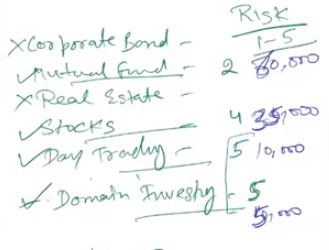 Risk
1-5
×Corporate Bond -
✓Mutual Fund - 2 80,000
×Real Estate -
✓Stocks 4 35,000
✓Day Trading - 5 10,000
✓Domain Investy - 5
5,000